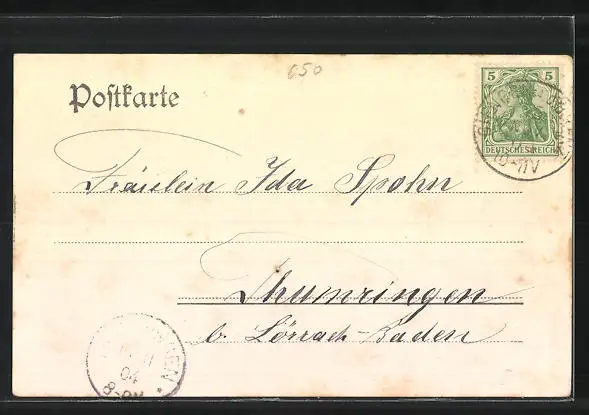 650
Postkarte
5 5
DEUTSCHES REICH
10-11V
Fräulein Ida Spohn
Thumringen
b. Lörrach-Baden
11
04
8-9V